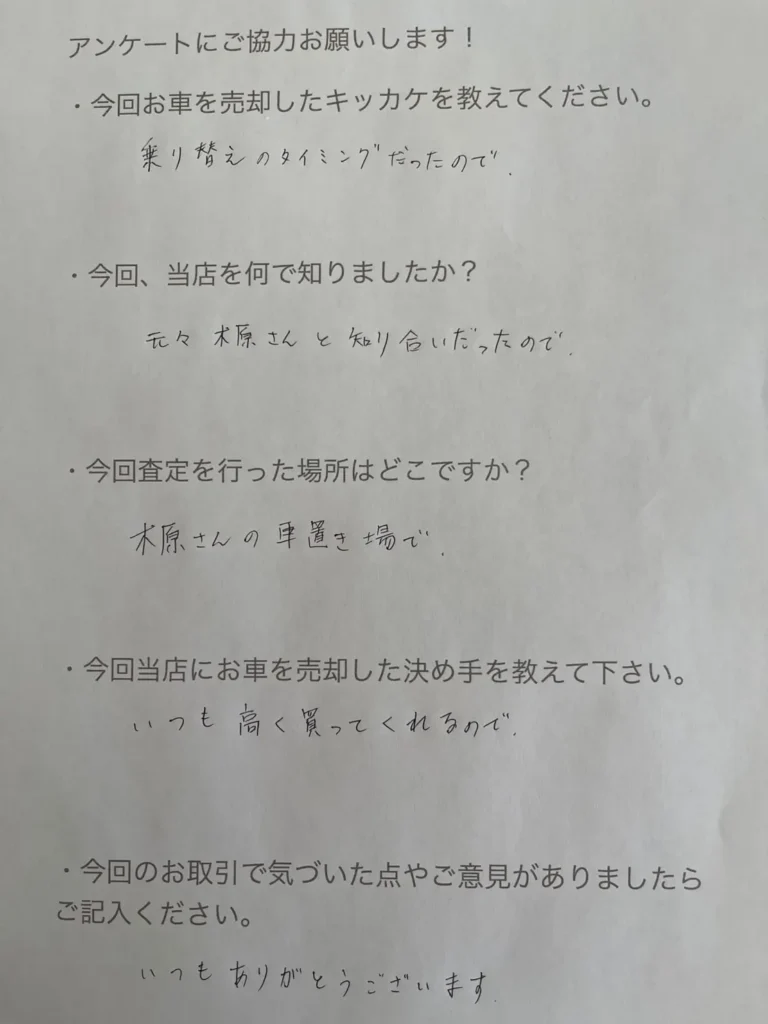 アンケートにご協力お願いします！
・今回お車を売却したキッカケを教えてください。
乗り替えのタイミングだったので.
・今回、当店を何で知りましたか？
元々木原さんと知り合いだったので.
・今回査定を行った場所はどこですか？
木原さんの車置き場で.
・今回当店にお車を売却した決め手を教えて下さい。
いつも高く買ってくれるので.
・今回のお取引で気づいた点やご意見がありましたら
ご記入ください。
いつもありがとうございます.